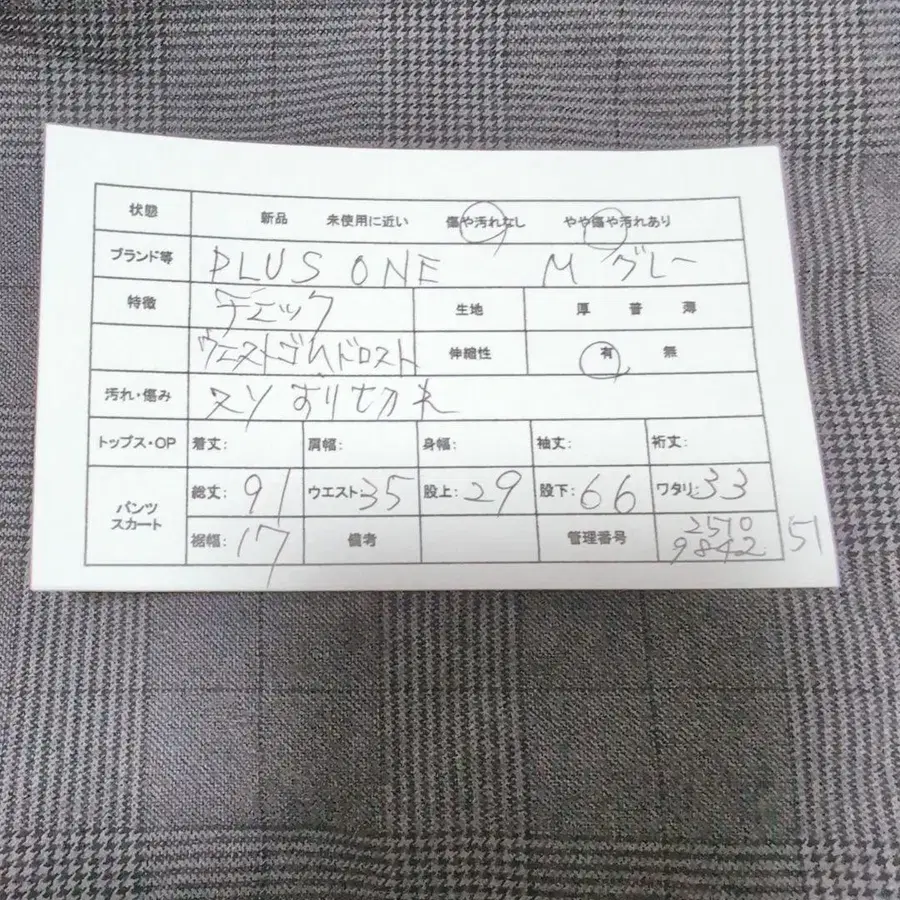 状態 新品 未使用に近い 傷や汚れなし やや傷や汚れあり
ブランド等 PLUS ONE M グレー
特徴 チェック 生地 厚 普 薄
ウエストゴムドロスト 伸縮性 有 無
汚れ・傷み スソすり切れ
トップス・OP 着丈: 肩幅: 身幅: 袖丈: 裄丈:
パンツ スカート 総丈: 91 ウエスト: 35 股上: 29 股下: 66 ワタリ: 33
裾幅: 17 備考 管理番号 2510 9842 51